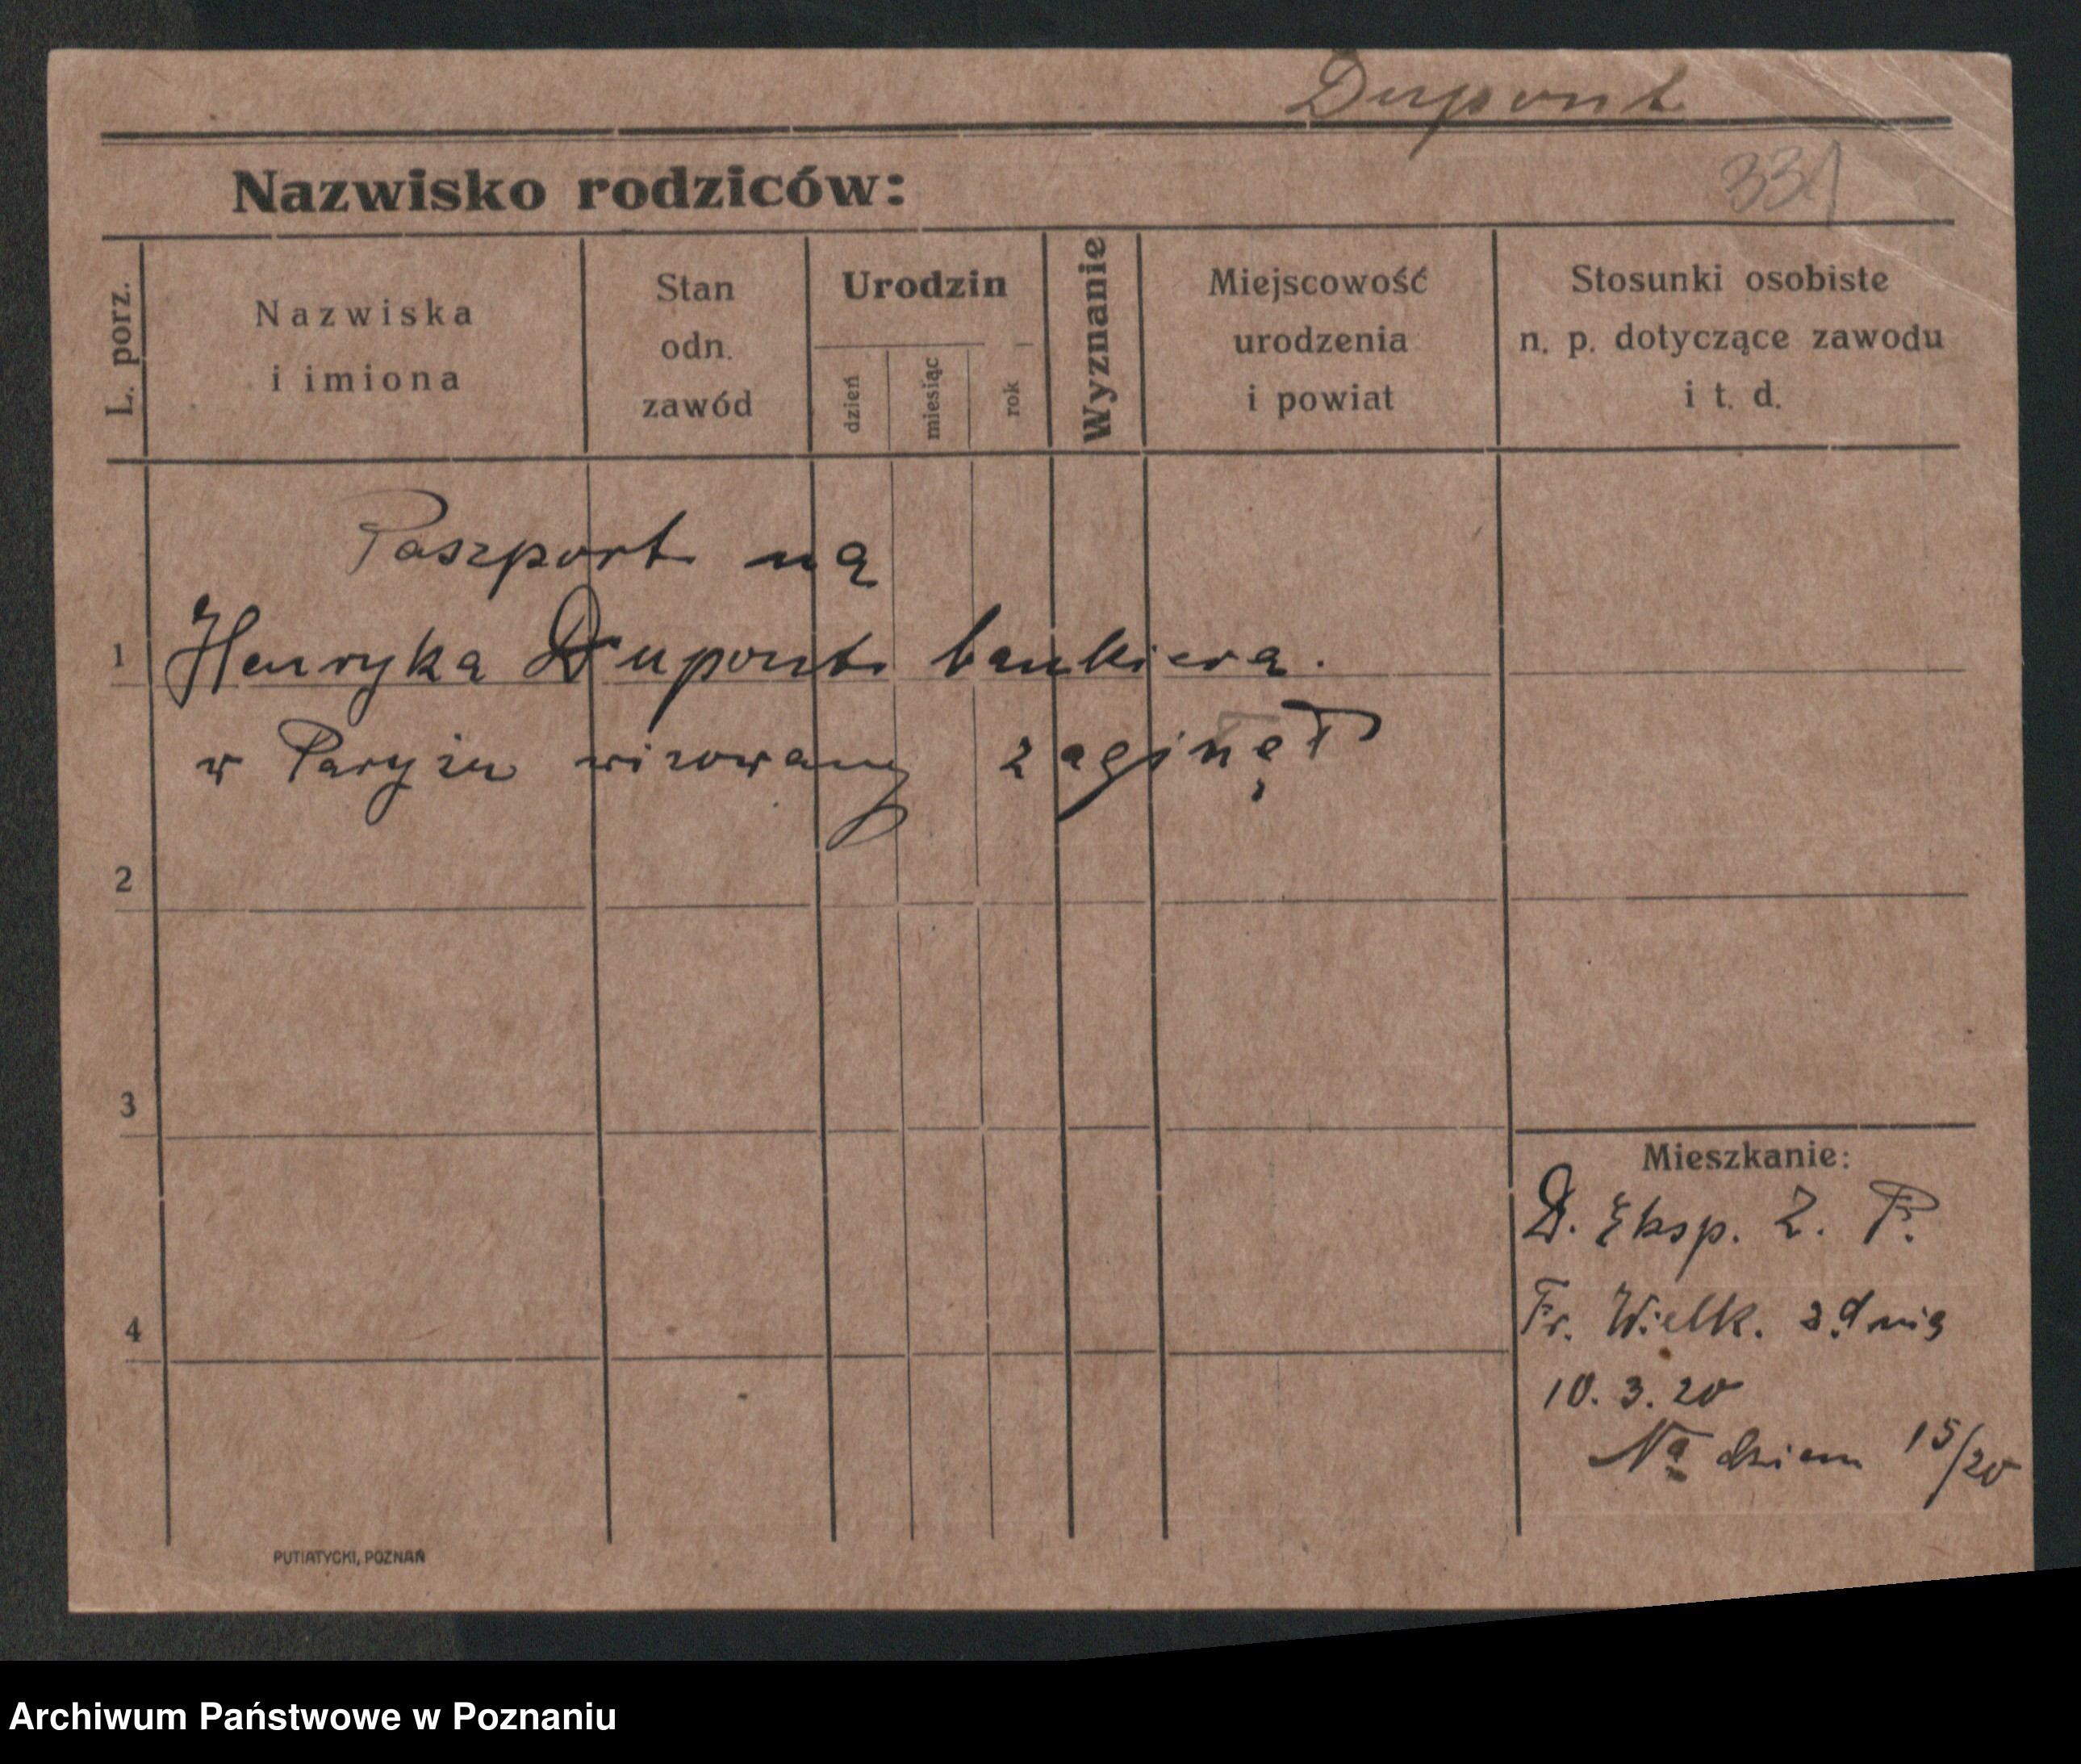 Dupont
Nazwisko rodziców:
331
L. porz.
Nazwiska
i imiona
Stan
odn.
zawód
Urodzin
dzień
miesiąc
rok
Wyznanie
Miejscowość
urodzenia
i powiat
Stosunki osobiste
n. p. dotyczące zawodu
i t. d.
Paszport na
1 Henryka Dupont bankiera.
w Paryżu wizowany zaginął
2
3
4
Mieszkanie:
D. Eksp. Z. P.
Fr. Wielk. z dnia
10. 3. 20
Na dzien 15/20
PUTIATYCKI, POZNAŃ
Archiwum Państwowe w Poznaniu